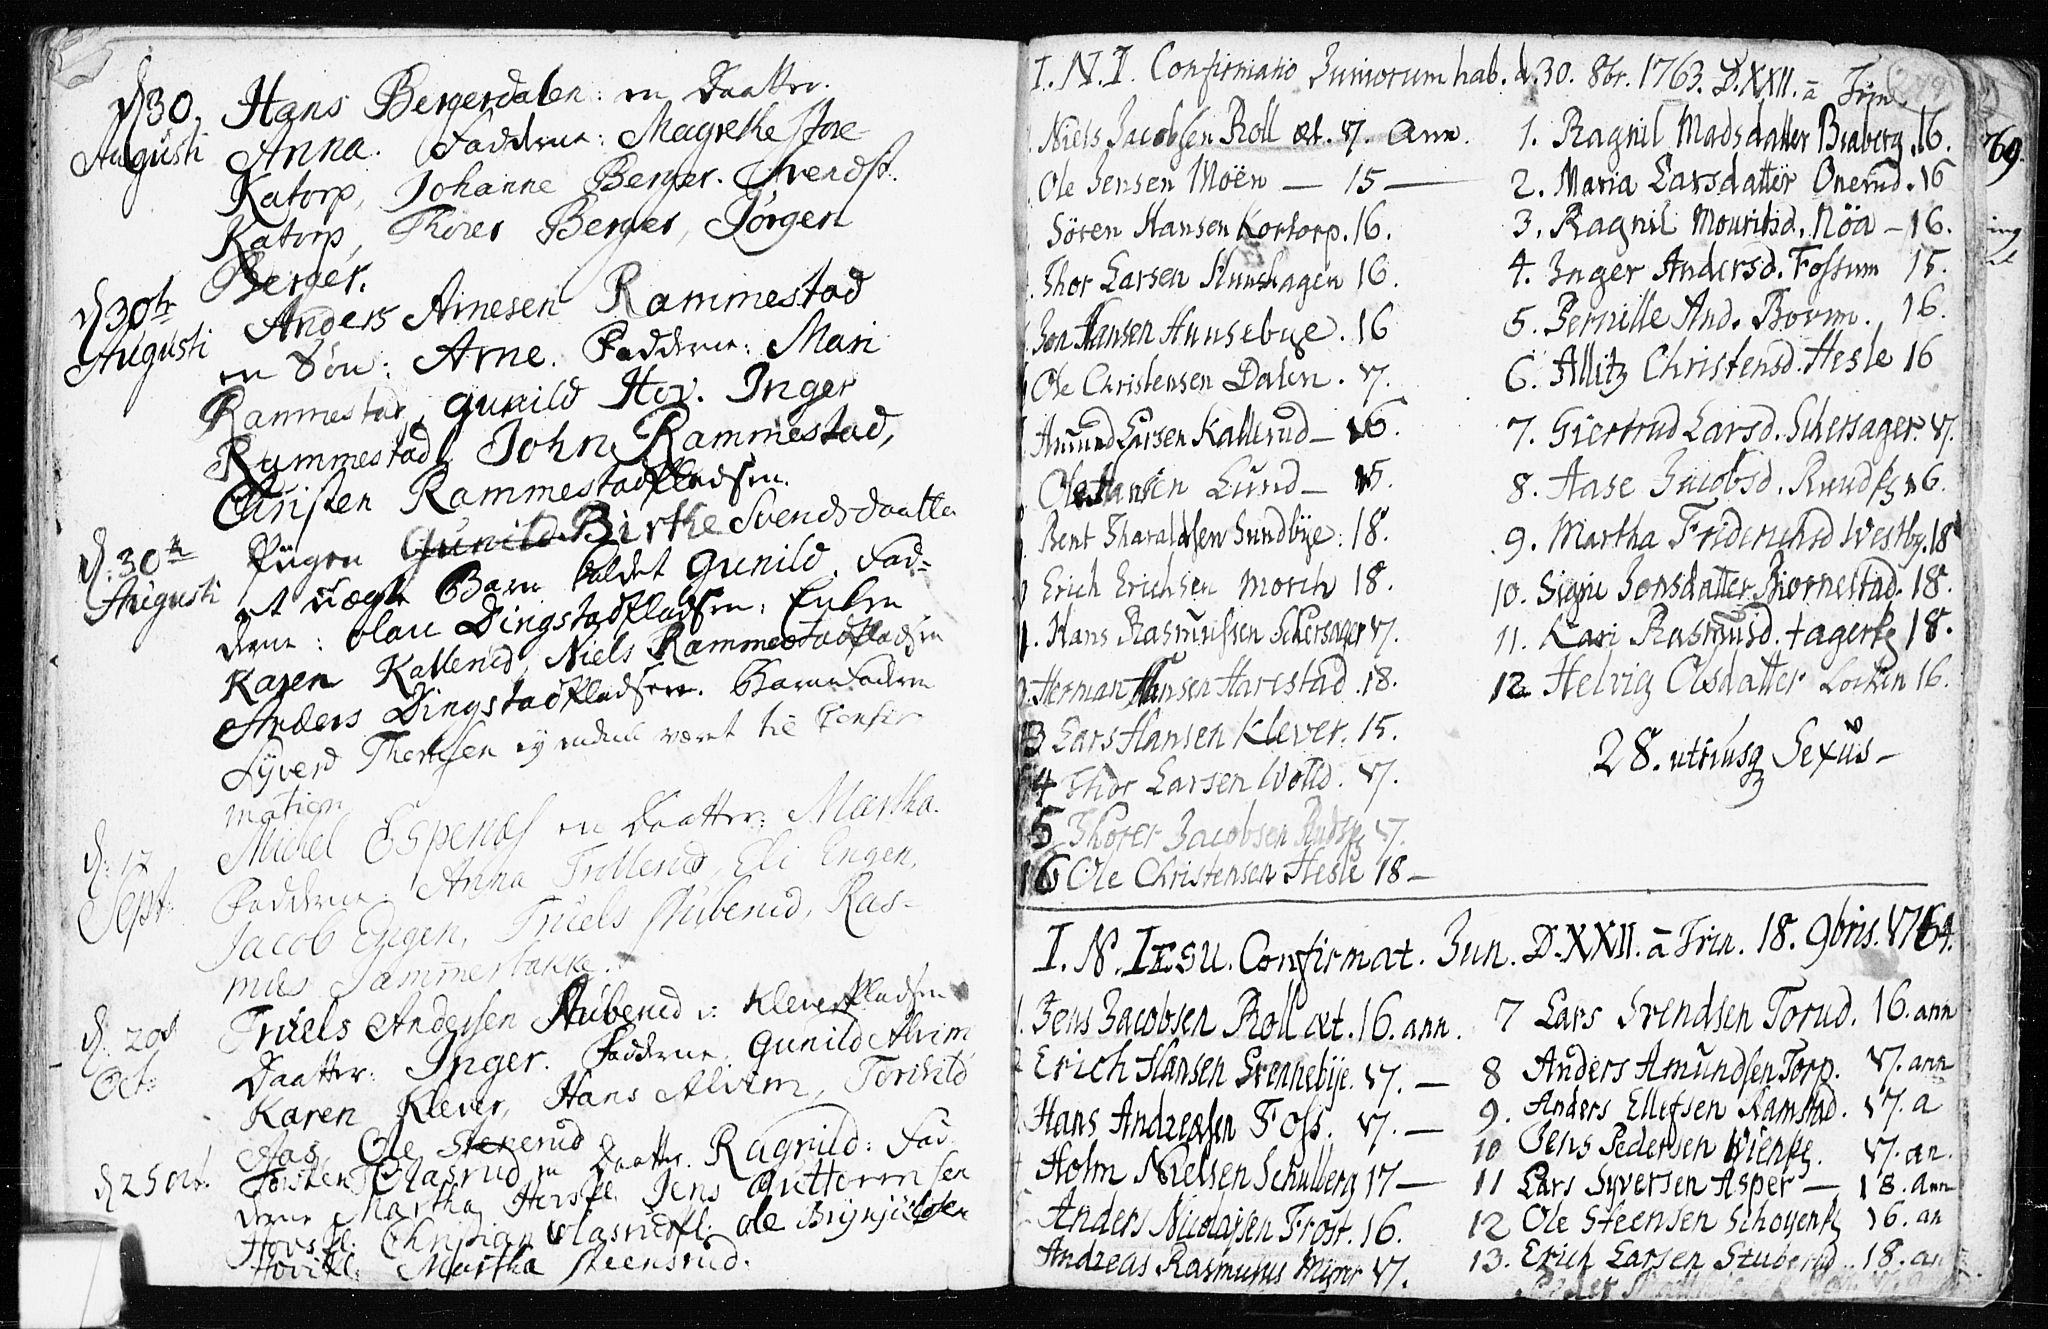 d 30. Hans Bergerdalen: en Daatter.
Augusti Anna. Fadderne: Magrethe store
Katorp, Johanne Berger. Svends:
Katorp, Thores Berger, Jörgen
Berger.
d 30te Anders Arnesen Rammestad
Augusti en Sön: Arne. Fadderne: Mari
Rammestad, Gunild Hov. Inger
Rammestad, John Rammestad,
Christen Rammestadpladsen.
d: 30te Pigen Gunild Birke Svendsdaatter
Augusti et uægte Barn kaldet Gunild. Fad-
derne: Olau Dingstadpladsen: Enken
Karen Kallerud, Niels Rammestadpladsen
Anders Dingstadpladsen. Barnefaderen
Syverd Thoresen ej endnu været til Confir
mation
d: 12 Michel Espenes en Daatter: Martha.
Sept: Fadderne: Anna Trillerud, Eli Engen,
Jacob Engen, Truels Stuberud, Ras-
mus Sammerbakke.
d: 20d Truels Andersen Stuberud: Kleverpladsen
Oct: Daatter: Inger. Fadderne: Gunild Alvim
Karen Klever, Hans Alvim, Torkild
Aas, Ole Stenerud
d 25 Oct. Torsten Olasrud en Daatter. Ragnild: Fad-
derne Martha Horspl. Jens Guttormsen
Hovspl. Christian Olasrudpl. Ole Brynjulsen
Hovikl: Martha Steensrud.
I. N. I. Confirmatio Juniorum hab. d. 30. 8br. 1763. D. XXII. a Trin.
Niels Jacobsen Roll æt. 17. Ann.
Ole Jensen Moën — 15 —
Sören Hansen Kortorp. 16.
Thor Larsen Hunshagen 16.
Jon Hansen Huusebye. 16
Ole Christensen Dalen. 17.
Amund Larsen Kallerud — 16.
Ole Hansen Lund — 15.
Bent Tharaldsen Sundbye: 18.
Erich Erichsen Morch 18.
1. Hans Rasmussen Schersager 17.
2. Herman Hansen Harestad. 18.
13 Lars Hansen Klever. 15.
14 Thor Larsen Wolld. 17.
15 Thorer Jacobsen Rudspl 17.
16 Ole Christensen Hesle 18 —
1. Ragnil Madsdatter Braberg. 16.
2. Maria Larsdatter Onerud. 16
3. Ragnil Mouritsd. Nöa — 16.
4. Inger Andersd. Fossum 15.
5. Pernille And. Borm. 16.
6. Allitz Christensd. Hesle 16
7. Giertrud Larsd. Schersager. 17.
8. Aase Jacobsd. Ruudpl 16.
9. Martha Friderichsd Westby. 18
10. Signe Jonsdatter Biornestad. 18.
11. Kari Rasmusd. Hagerpl 18.
12. Helvig Olsdatter Locken 16.
28. utriusq Sexus —
I. N. IESU. Confirmat. Jun. D. XXII. a Trin. 18. 9bris. 1764.
1. Jens Jacobsen Roll æt. 16. ann.
2 Erich Hansen Grennebye. 17. —
Hans Andreasen Foss. 17. —
Holm Nielsen Schulberg 17 —
Anders Nicolajsen Frost. 16.
Andreas Rasmusus Mÿrer 17.
7 Lars Svendsen Torud. 16. ann
8 Anders Amundsen Torp. 17. ann
9. Anders Ellefsen Ramstad. 17. a
10 Jens Pedersen Wienpl. 17. an.
11 Lars Syversen Asper — 18. Ann
12 Ole Steensen Schoyenpl 16. an
13. Erich Larsen Stuberud.. 18. an
69.
ing